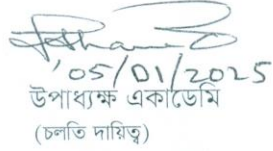 05/01/2025
উপাধ্যক্ষ একাডেমি
(চলতি দায়িত্ব)